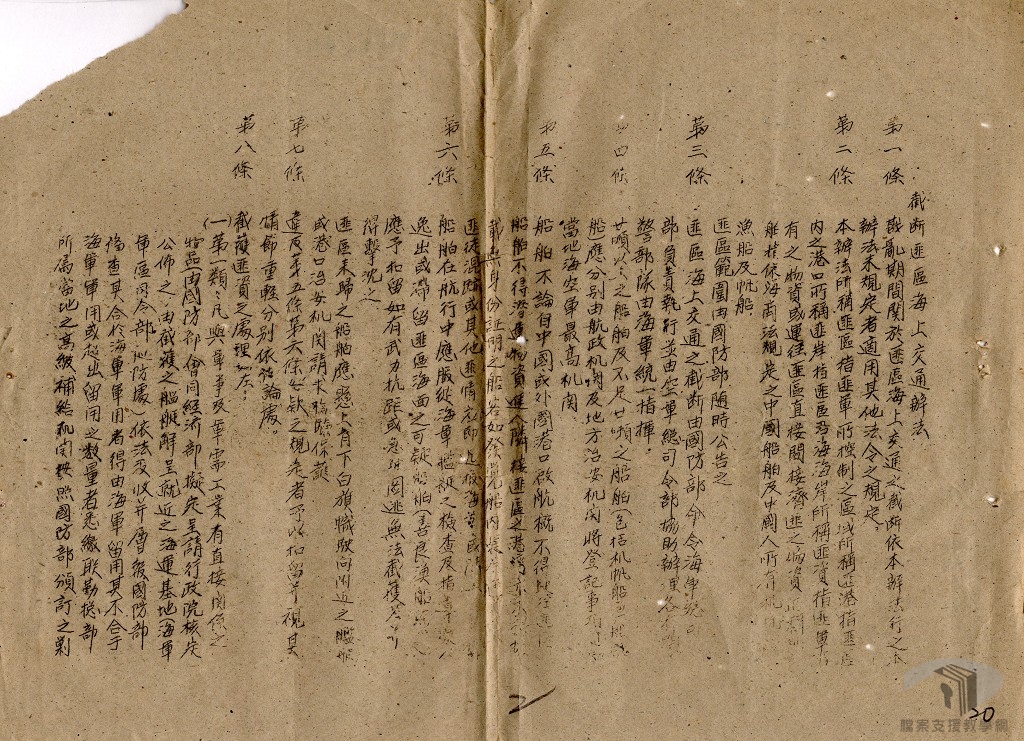 截断匪區海上交通辦法
第一條 戡亂期間関於匪區海上交通之截断依本辦法行之本
辦法未規定者適用其他法令之規定
第二條 本辦法所稱匪區指匪軍所控制之區域所稱匪港指匪區
內之港口所稱匪岸指匪區沿海海岸所稱匪資指匪軍
有之物資或運往匪區直接間接濟匪之物資
船指依海商法規定之中國船舶及中國人所有
漁船及帆船
匪區範圍由國防部隨時公告之
第三條 匪區海上交通之截断由國防部令海軍總司
部負責執行並由空軍總司令部協助辦理各
警部隊由海軍統一指揮
第四條 廿噸以上之船舶及不足廿噸之船舶(包括機帆船
船應分别由航政机関及地方治安机関將登記事項通知
當地海空軍最高机関
第五條 船舶不論自中國或外國港口啟航概不得
船舶不得潛運物資進入隣接匪區之港灣
載無身份証明之船客如發現船內
匪徒混跡或其他匪情應即近報海軍
第六條 船舶在航行中應服從海軍艦艇之檢查及指
逸出或滯留匪區海面之可疑船舶(善良漁船
應予扣留如有武力抗距或悉圖逃無法截獲
得擊沉之
第七條 匪區来歸之船舶應懸上有下白旗幟駛向附近之艦艇
或港口治安机関請求臨檢保護
違反第五條第六條各款之規定者予以扣留并視其
情節重輕分别依法論處
第八條 截獲匪資之處理如左:
(一)第一類:凡與軍事及軍需工業有直接関係之
物品(由國防部會同經济部擬定呈請行政院核定
公佈之)由截獲之船艇解呈就近之海軍基地(海軍
軍區司令部、巡防處)依法及收并會後國防部
偹查其合於海軍軍用者得由海軍留用其不合于
海軍軍用或忽出留用之数量者悉繳联勤總部
所屬當地之高級補給机関按照國防部頒訂之剿
2
20
檔案支援教學網